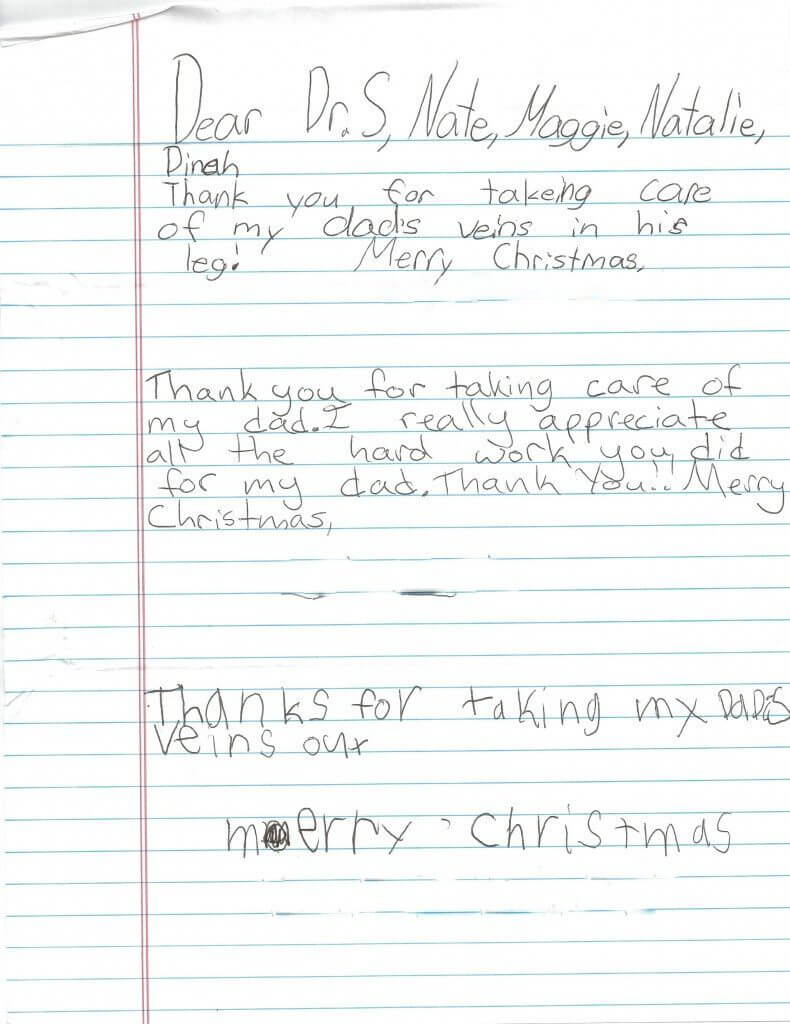 Dear Dr. S, Nate, Maggie, Natalie,
Dinah
Thank you for takeing care
of my dad's veins in his
leg! Merry Christmas,
Thank you for taking care of
my dad. I really appreciate
all the hard work you did
for my dad. Thank You!! Merry
Christmas,
Thanks for taking my DaD's
veins out
merry - christmas